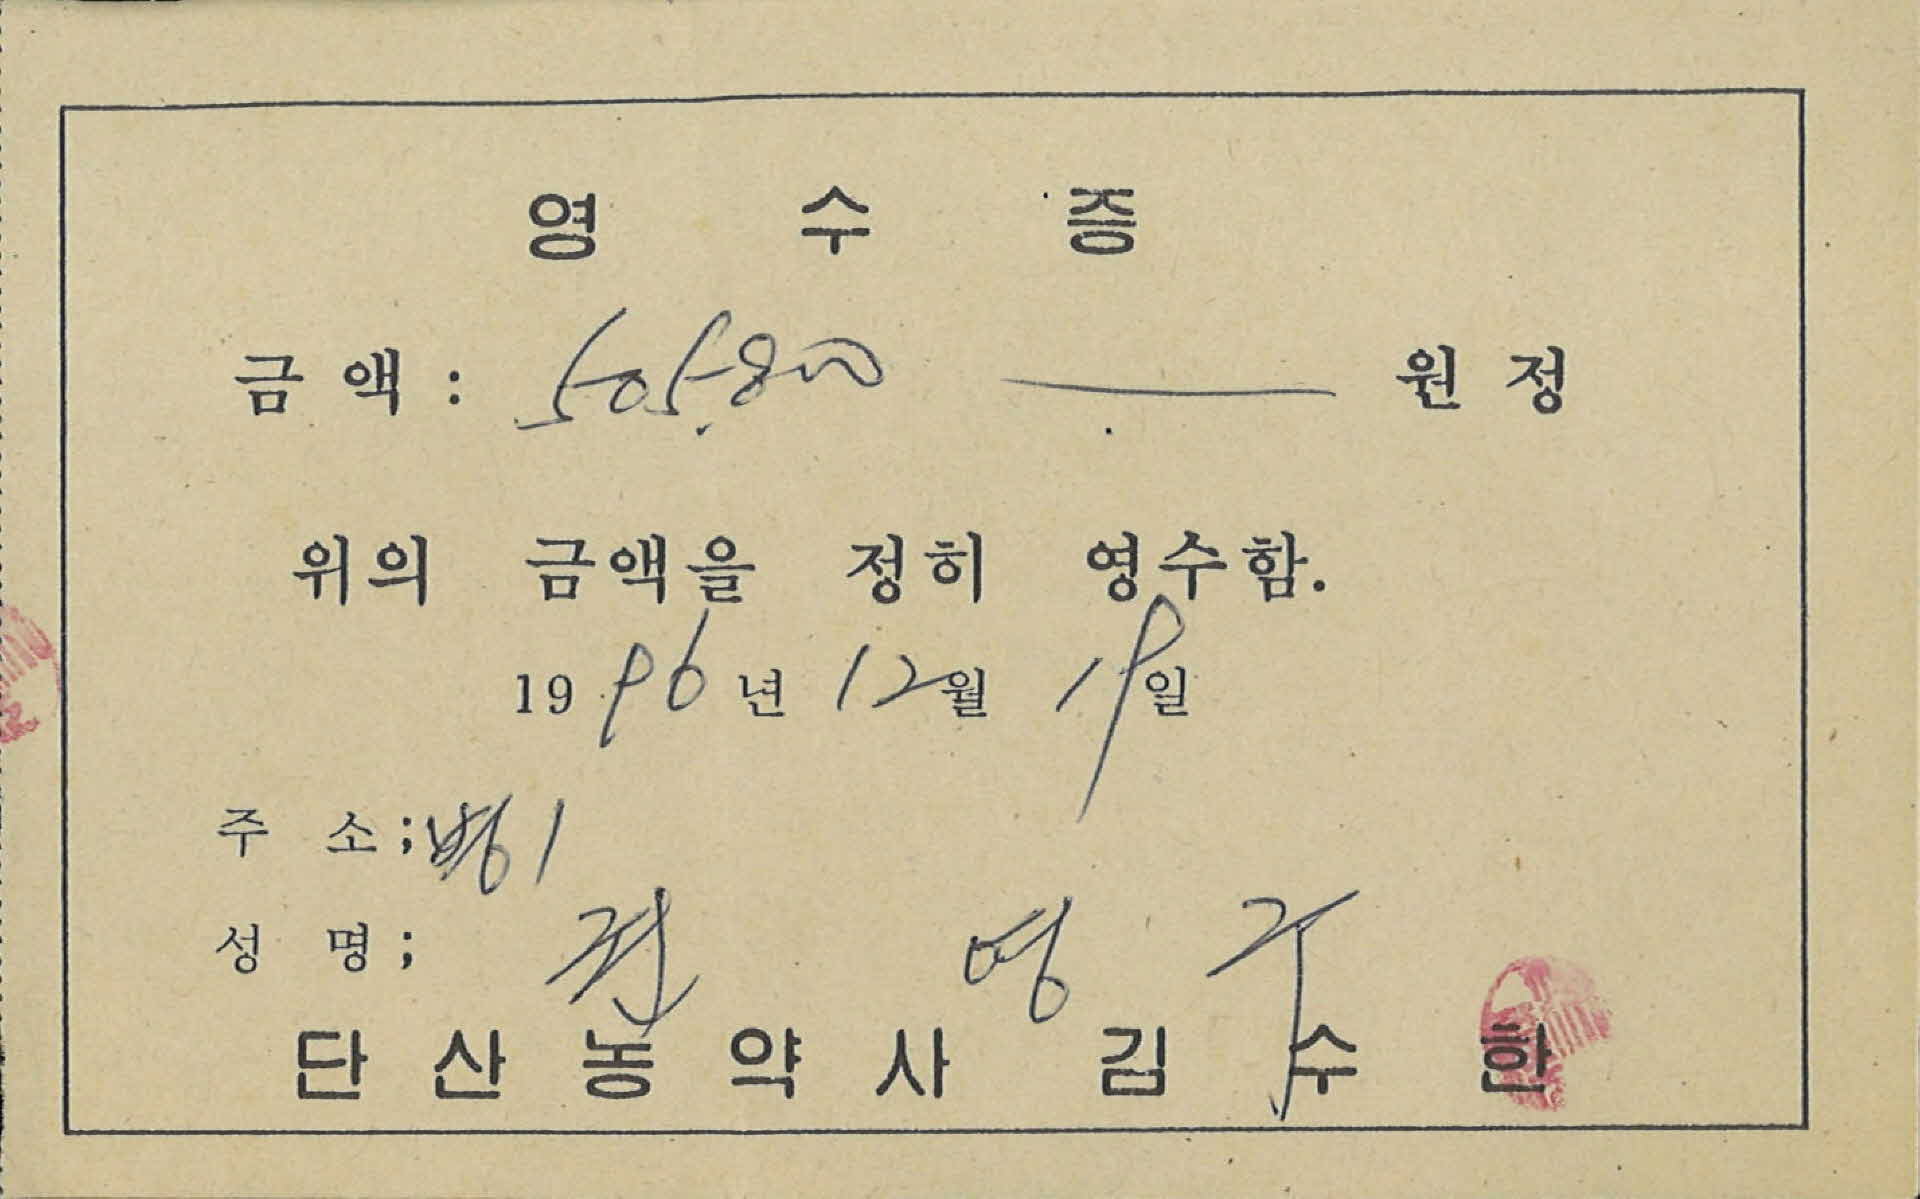 영 수 증
금 액 : 505,800 원 정
위의 금액을 정히 영수함.
1996년 12월 19일
주 소 ; 병1
성 명 ; 권 영 구
단 산 농 약 사 김 수 한